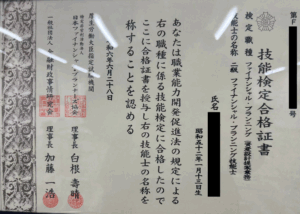 第F
技能検定合格証書
検定職種 ファイナンシャル・プランニング（資産設計提案業務）
技能士の名称 二級ファイナンシャル・プランニング技能士
氏名
昭和五十二年一月十三日生
あなたは職業能力開発促進法の規定による
右の職種に係る技能検定に合格したので
ここに合格証書を授与し右の技能士の名称を
称することを認める
令和六年六月二十八日
厚生労働大臣指定試験機関
日本ファイナンシャル・プランナーズ協会
理事長 白根壽晴
一般社団法人 金融財政事情研究会
理事長 加藤一浩